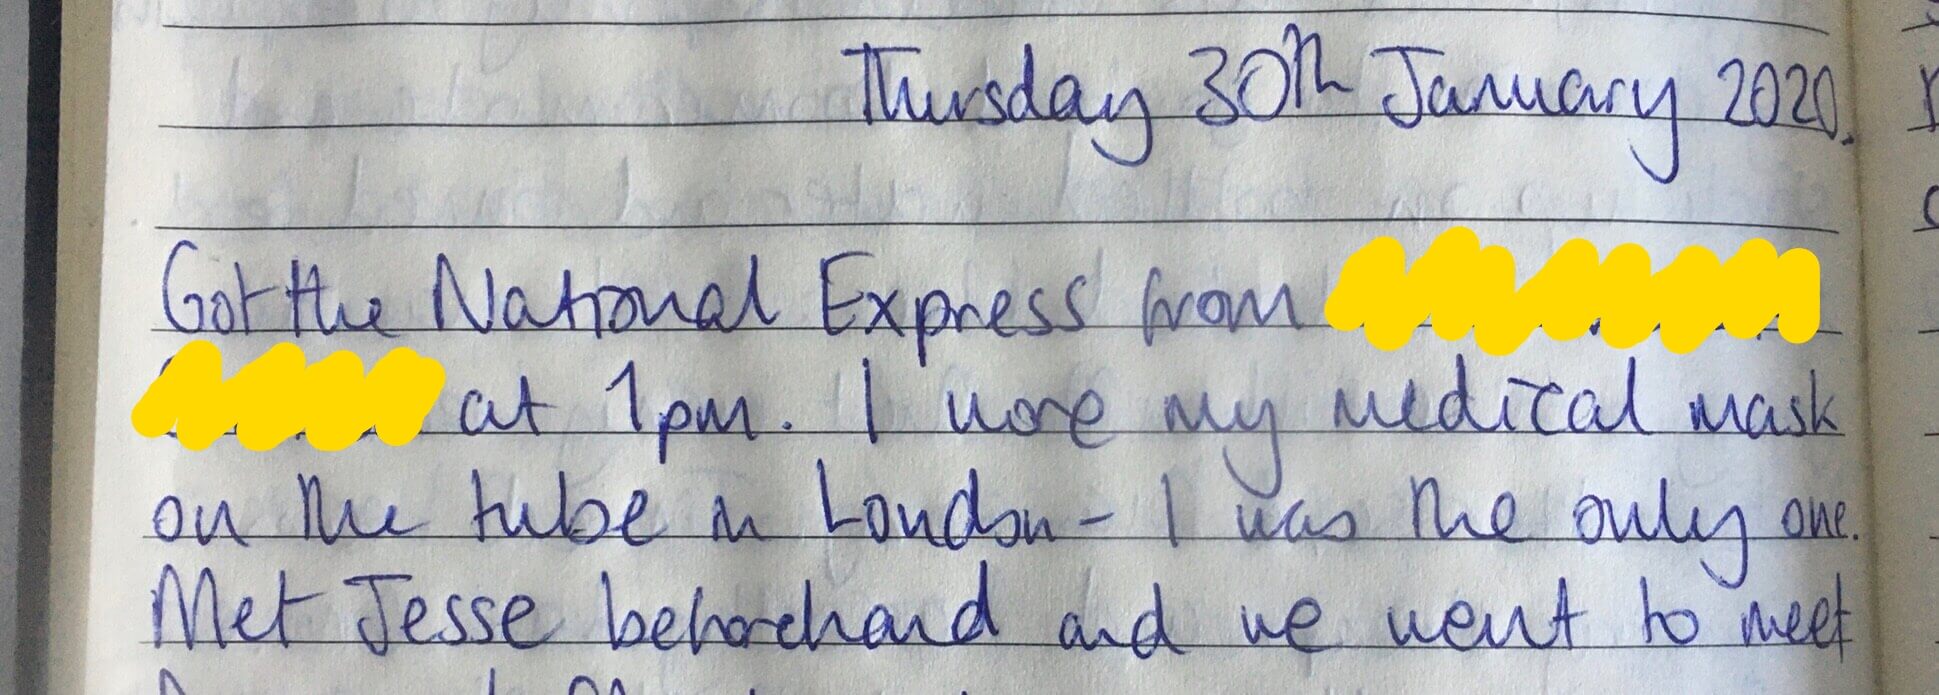 Thursday 30th January 2020.
Got the National Express from
at 1pm. I wore my medical mask
on the tube in London - I was the only one.
Met Jesse beforehand and we went to meet